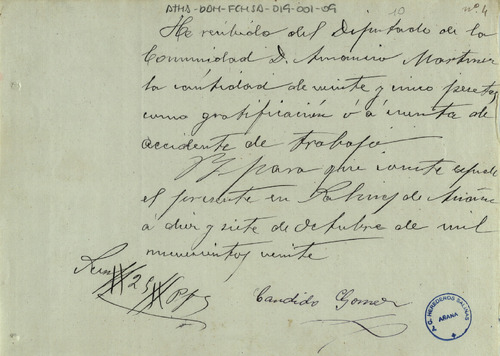 ATHA-DAH-FCHSA-019-001-09
10
nº 4
He recibido del Diputado de la
Comunidad D. Amancio Martinez
la cantidad de veinte y cinco pesetas
como gratificación ó á cuenta de
accidente de trabajo
Y para que conste expido
el presente en Salinas de Añana
a diez y siete de Octubre de mil
novecientos veinte
Son 25 Pts
Candido Gomez
HEREDEROS SALINAS
AÑANA